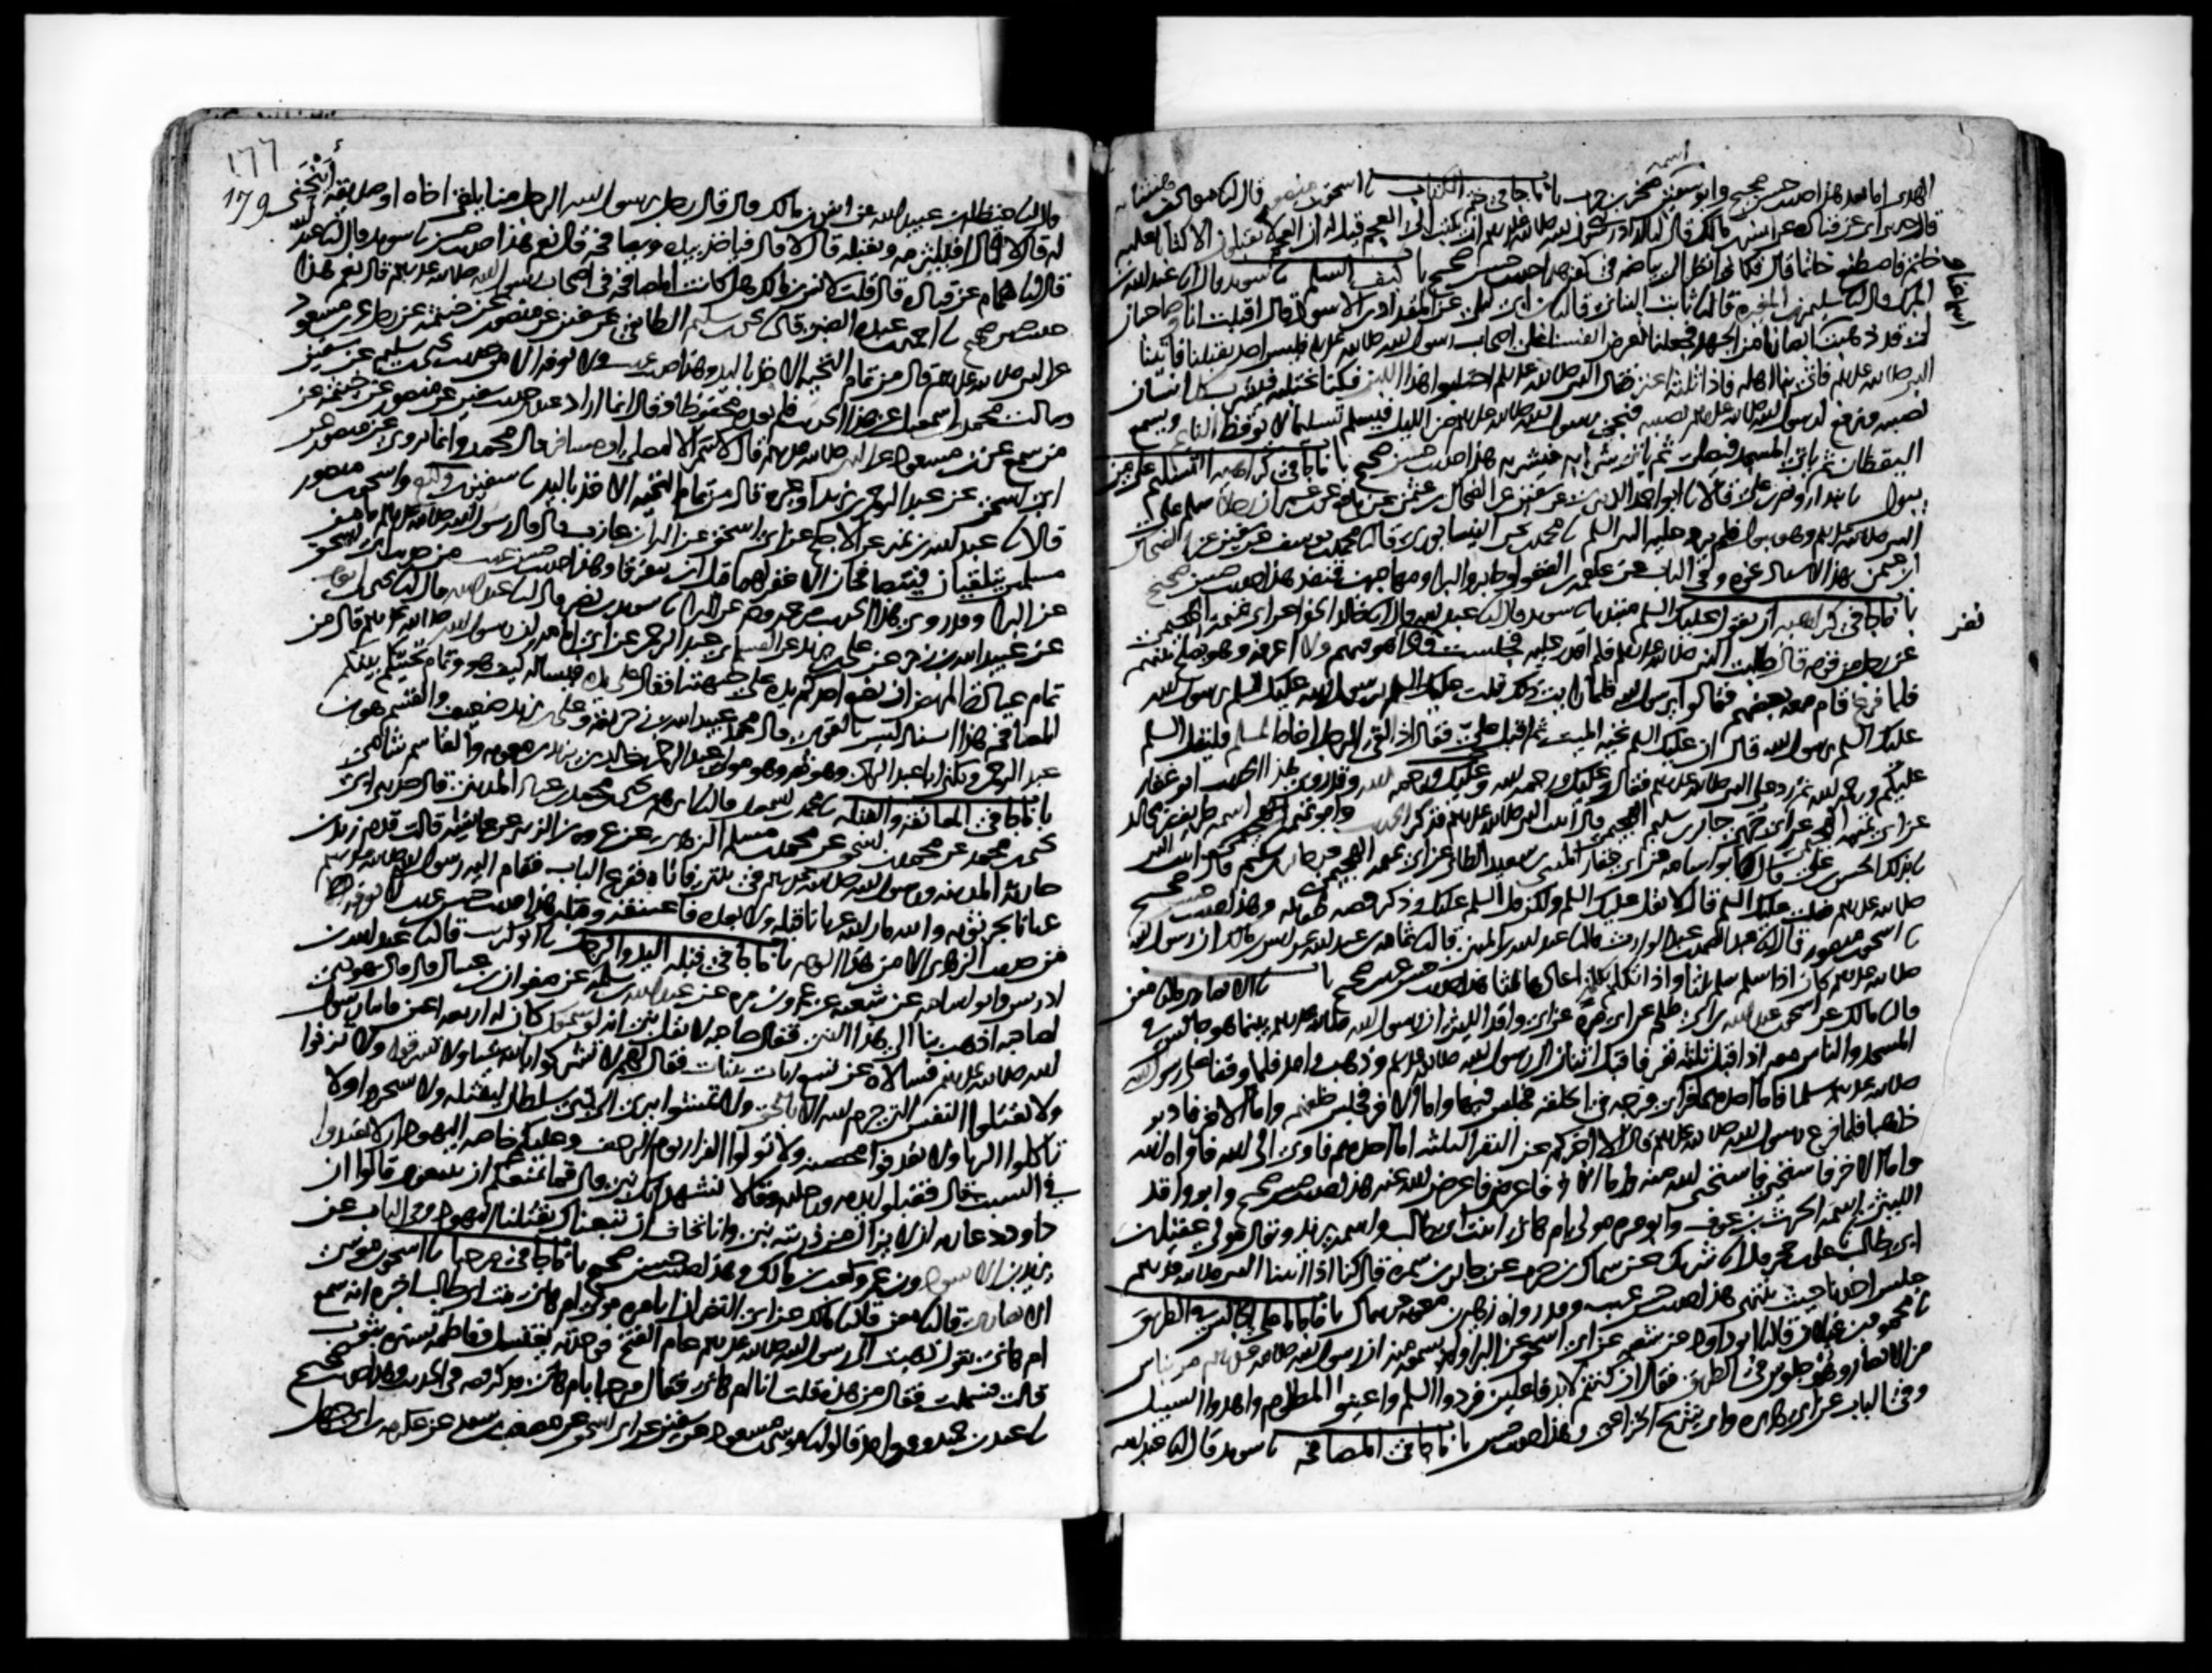 اسمه
الهدى اما بعد هذا حديث حسن صحيح وابو سفين صخر بن حرب باب ما جا في ختم الكتاب نا اسحق بن منصور قال نا معاذ بن هشام
قال حدثني ابي عن قتاده عن انس بن مالك قال لما اراد نبي الله صلى الله عليه وسلم ان يكتب الى العجم قيل له ان العجم لا يقبلون الا كتابا عليه
خاتم فاصطنع خاتما قال فكاني انظر الى بياضه في كفه هذا حديث حسن صحيح باب كيف السلم نا سويد قال انا عبد الله بن
المبرك قال نا سليمن بن المغيره قال نا ثابت البناني قال نا ابن ابي ليلى عن المقداد بن الاسود قال اقبلت انا وصاحبان
لي قد ذهبت اسماعنا وابصارنا من الجهد فجعلنا نعرض انفسنا على اصحاب رسول الله صلى الله عليه وسلم فليس احد يقبلنا فاتينا
النبي صلى الله عليه وسلم فاتى بنا اهله فاذا ثلثه اعنز فقال النبي صلى الله عليه وسلم احتلبوا هذا اللبن فكنا نحتلبه فيشرب كل انسان
نصيبه ونرفع لرسول الله صلى الله عليه وسلم نصيبه فيجي رسول الله صلى الله عليه وسلم من الليل فيسلم تسليما لا يوقظ النايم ويسمع
اليقظان ثم ياتي المسجد فيصلي ثم ياتي شرابه فيشربه هذا حديث حسن صحيح باب ما جا في كراهيه التسليم على من
يبول نا بندار ونصر بن علي قالا نا ابو احمد الزبيري عن سفين عن الضحاك بن عثمن عن نافع عن ابن عمر ان رجلا سلم على
النبي صلى الله عليه وسلم وهو يبول فلم يرد عليه السلم نا محمد بن يحيى النيسابوري قال نا محمد بن يوسف عن سفين عن الضحاك
ابن عثمن بهذا الاسناد نحوه وفي الباب عن علقمه بن الفغوا وجابر والبرا ومهاجر بن قنفذ هذا حديث حسن صحيح
باب ما جا في كراهيه ان يقول عليك السلم مبتديا نا سويد قال نا عبد الله قال نا خالد الحذا عن ابي تميمه الهجيمي
عن رجل من قومه قال طلبت النبي صلى الله عليه وسلم فلم اقدر عليه فجلست فاذا نفر هو فيهم ولا اعرفه وهو يصلح بينهم
فلما فرغ قام معه بعضهم فقالوا يرسول الله فلما رايت ذلك قلت عليك السلم يرسول الله عليك السلم يرسول الله
عليك السلم يرسول الله قال ان عليك السلم تحيه الميت ثم اقبل علي فقال اذا لقي الرجل اخاه المسلم فليقل السلم
عليكم ورحمه الله ثم رد علي النبي صلى الله عليه وسلم فقال وعليك ورحمه الله وعليك ورحمه الله وقد روى هذا الحديث ابو غفار
عن ابي تميمه الهجيمي عن ابي جري جابر بن سليم الهجيمي قال اتيت النبي صلى الله عليه وسلم فذكر الحديث وابو تميمه اسمه طريف بن مجالد
نا بذلك الحسن بن علي قال نا ابو اسامه عن ابي غفار المثنى بن سعيد الطائي عن ابي تميمه الهجيمي عن جابر بن سليم قال اتيت النبي
صلى الله عليه وسلم فقلت عليك السلم قال لا تقل عليك السلم ولكن قل السلم عليك وذكر قصه طويله وهذا حديث حسن صحيح
نا اسحق بن منصور قال نا عبد الصمد بن عبد الوارث قال نا عبد الله بن المثنى قال نا ثمامه بن عبد الله عن انس بن مالك ان رسول الله
صلى الله عليه وسلم كان اذا سلم سلم ثلثا واذا تكلم بكلمه اعادها ثلثا هذا حديث حسن غريب صحيح باب نا الانصاري قال نا معن
قال نا مالك عن اسحق بن عبد الله بن ابي طلحه عن ابي مره عن ابي واقد الليثي ان رسول الله صلى الله عليه وسلم بينما هو جالس في
المسجد والناس معه اذ اقبل ثلثه نفر فاقبل اثنان الى رسول الله صلى الله عليه وسلم وذهب واحد فلما وقفا على رسول الله
صلى الله عليه وسلم سلما فاما احدهما فراى فرجه في الحلقه فجلس فيها واما الاخر فجلس خلفهم واما الاخر فادبر
ذاهبا فلما فرغ رسول الله صلى الله عليه وسلم قال الا اخبركم عن النفر الثلثه اما احدهم فاوى الى الله فاواه الله
واما الاخر فاستحيى فاستحيى الله منه واما الاخر فاعرض فاعرض الله عنه هذا حديث حسن صحيح وابو واقد
الليثي اسمه الحرث بن عوف وابو مره مولى ام هاني ابنت ابي طالب واسمه يزيد ويقال مولى عقيل بن
ابي طالب نا علي بن حجر قال نا شريك عن سماك بن حرب عن جابر بن سمره قال كنا اذا اتينا النبي صلى الله عليه وسلم
جلس احدنا حيث ينتهي هذا حديث حسن غريب وقد رواه زهير بن معويه عن سماك باب ما جا ما على الجالس في الطريق
نا محمود بن غيلان قال نا ابو داود عن شعبه عن ابي اسحق عن البرا ولم يسمعه منه ان رسول الله صلى الله عليه وسلم مر بناس
من الانصار وهم جلوس في الطريق فقال ان كنتم لا بد فاعلين فردوا السلم واعينوا المظلوم واهدوا السبيل
وفي الباب عن ابي هريره وابي شريح الخزاعي وهذا حديث حسن باب ما جا في المصافحه نا سويد قال نا عبد الله
نفر
177
179
قال نا حنظله بن عبيد الله عن انس بن مالك قال قال رجل يرسول الله الرجل منا يلقى اخاه او صديقه اينحني
له قال لا قال افيلتزمه ويقبله قال لا قال فياخذ بيده ويصافحه قال نعم هذا حديث حسن نا سويد قال نا عبد الله
قال نا همام عن قتاده قال قلت لانس بن مالك هل كانت المصافحه في اصحاب رسول الله صلى الله عليه وسلم قال نعم هذا
حديث حسن صحيح نا احمد بن عبده الضبي قال نا يحيى بن سليم الطائفي عن سفين عن منصور عن خيثمه عن رجل عن ابن مسعود
عن النبي صلى الله عليه وسلم قال من تمام التحيه الاخذ باليد وهذا حديث غريب ولا نعرفه الا من حديث يحيى بن سليم عن سفين
وسالت محمد بن اسمعيل عن هذا الحديث فلم يعده محفوظا وقال انما اراد عندي حديث سفين عن منصور عن خيثمه عن
من سمع عن ابن مسعود عن النبي صلى الله عليه وسلم قال لا سمر الا لمصلي او مسافر قال محمد وانما يروى عن منصور عن
ابي اسحق عن عبد الرحمن بن يزيد او غيره قال من تمام التحيه الاخذ باليد نا سفين بن وكيع واسحق بن منصور
قالا نا عبد الله بن نمير عن الاجلح عن ابي اسحق عن البرا بن عازب قال قال رسول الله صلى الله عليه وسلم ما من
مسلمين يلتقيان فيتصافحان الا غفر لهما قبل ان يتفرقا وهذا حديث حسن غريب من حديث ابي اسحق
عن البرا وقد روي هذا الحديث من غير وجه عن البرا نا سويد بن نصر قال نا عبد الله قال نا يحيى بن ايوب
عن عبيد الله بن زحر عن علي بن يزيد عن القسم بن عبد الرحمن عن ابي امامه ان رسول الله صلى الله عليه وسلم قال من
تمام عياده المريض ان يضع احدكم يده على جبهته او قال على يده فيساله كيف هو وتمام تحيتكم بينكم
المصافحه هذا اسناد ليس بالقوي قال محمد عبيد الله بن زحر ثقه وعلي بن يزيد ضعيف والقسم هو ابن
عبد الرحمن ويكنى ابا عبد الرحمن وهو ثقه وهو مولى عبد الرحمن بن خالد بن يزيد بن معويه والقاسم شامي
باب ما جا في المعانقه والقبله نا محمد بن اسمعيل قال نا ابرهيم بن يحيى بن محمد بن عباد المديني قال حدثني ابي
يحيى بن محمد عن محمد بن اسحق عن محمد بن مسلم الزهري عن عروه بن الزبير عن عايشه قالت قدم زيد بن
حارثه المدينه ورسول الله صلى الله عليه وسلم في بيتي فاتاه فقرع الباب فقام اليه رسول الله صلى الله عليه وسلم
عريانا يجر ثوبه والله ما رايته عريانا قبله ولا بعده فاعتنقه وقبله هذا حديث حسن غريب لا نعرفه
من حديث الزهري الا من هذا الوجه باب ما جا في قبله اليد والرجل نا ابو كريب قال نا عبد الله بن
ادريس وابو اسامه عن شعبه عن عمرو بن مره عن عبد الله بن سلمه عن صفوان بن عسال قال قال يهودي
لصاحبه اذهب بنا الى هذا النبي فقال صاحبه لا تقل نبي انه لو سمعك كان له اربعه اعين فاتيا رسول
الله صلى الله عليه وسلم فسالاه عن تسع ايات بينات فقال لهم لا تشركوا بالله شيا ولا تسرقوا ولا تزنوا
ولا تقتلوا النفس التي حرم الله الا بالحق ولا تمشوا ببري الى ذي سلطان ليقتله ولا تسحروا ولا
تاكلوا الربا ولا تقذفوا محصنه ولا تولوا الفرار يوم الزحف وعليكم خاصه اليهود ان لا تعتدوا
في السبت قال فقبلوا يديه ورجليه وقالا نشهد انك نبي قال فما يمنعكم ان تتبعوني قالوا ان
داود دعا ربه ان لا يزال من ذريته نبي وانا نخاف ان تبعناك يقتلنا اليهود وفي الباب عن
يزيد بن الاسود وابن عمر وكعب بن مالك وهذا حديث حسن صحيح باب ما جا في مرحبا نا اسحق بن موسى
الانصاري قال نا معن قال نا مالك عن ابي النضر ان ابا مره مولى ام هاني بنت ابي طالب اخبره انه سمع
ام هاني تقول ذهبت الى رسول الله صلى الله عليه وسلم عام الفتح فوجدته يغتسل وفاطمه تستره بثوب
قالت فسلمت فقال من هذه قلت انا ام هاني فقال مرحبا بام هاني فذكر قصه في الحديث وهذا حديث صحيح
نا عبد بن حميد وغير واحد قالوا نا موسى بن مسعود عن سفين عن ابي اسحق عن مصعب بن سعد عن عكرمه بن ابي جهل